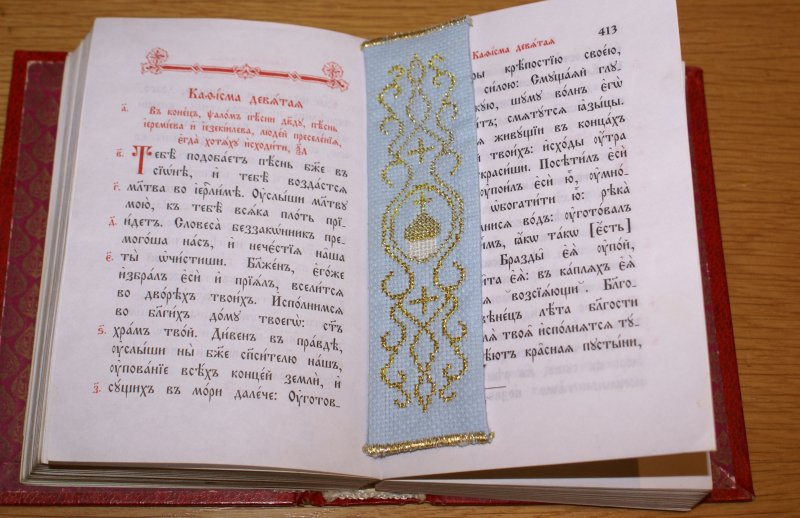 Каѳі́сма девѧ́таѧ
а҃. Въ коне́цъ, ѱало́мъ пѣ́сни дв҃ду, пѣ́снь
і҆еремі́ева и҆ і҆езекі́илева, люде́й преселе́нїѧ,
є҆гда̀ хотѧ́ху и҆сходи́ти, ѯ҃д
в҃. Тебѣ̀ подоба́етъ пѣ́снь бж҃е въ
сїѡ́нѣ, и҆ тебѣ̀ возда́стсѧ
г҃. мл҃тва во і҆ерⷭ҇ли́мѣ. Оу҆слы́ши мл҃тву
мою̀, къ тебѣ̀ всѧ́ка пло́ть прї-
д҃. и҆́детъ. Словеса̀ беззако́нникъ пре-
мого́ша на́съ, и҆ нече́стїѧ на̑ша
є҃. ты̀ ѡ҆чи́стиши. Бл҃же́нъ, є҆го́же
и҆збра́лъ є҆сѝ и҆ прїѧ́лъ, всели́тсѧ
во дво́рѣхъ твои́хъ. И҆спо́лнимсѧ
во бл҃ги́хъ до́му твоегѡ̀: ст҃ъ
ѕ҃. хра́мъ тво́й. Ди́венъ въ пра́вдѣ,
оу҆слы́ши ны̀ бж҃е сп҃си́телю на́шъ,
оу҆пова́нїе всѣ́хъ конце́й землѝ, и҆
з҃. су́щихъ въ мо́ри дале́че: Оу҆гото́в-
413
Каѳі́сма девѧ́таѧ
кре́постїю свое́ю,
си́лою: Смуща́ѧй глу-
шу́му во́лнъ є҆гѡ̀
смѧту́тсѧ ꙗ҆зы́цы.
живу́щїи въ конца́хъ
твои́хъ: и҆схо́ды оу҆́тра
Посѣти́лъ є҆сѝ
є҆сѝ ю҆̀, оу҆мно́-
ѡ҆богати́ти ю҆̀: рѣка̀
во́дъ: оу҆гото́валъ
ꙗ҆́кѡ та́кѡ [є҆́сть]
Бразды̑ є҆ѧ̀ оу҆по́й,
є҆ѧ̑: въ ка́плѧхъ є҆ѧ̀
возсїѧ́ющи. Бл҃го-
лѣ́та бл҃гости
твоѧ̑ и҆спо́лнѧтсѧ ту́-
кра̑снаѧ пусты́ни,